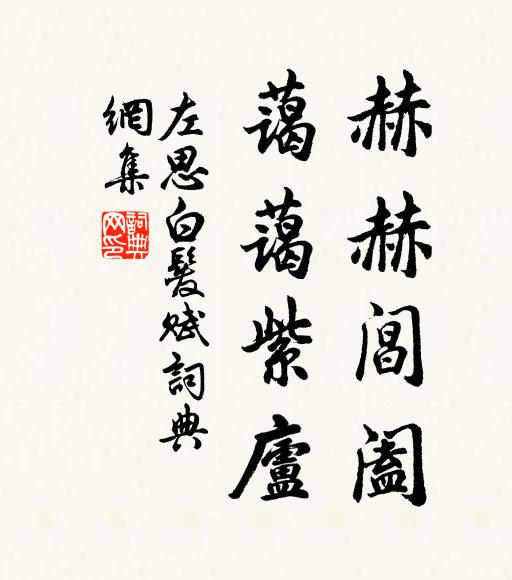 赫赫閶闔
藹藹紫廬
左思白髮賦詞典
網集
詞典网印